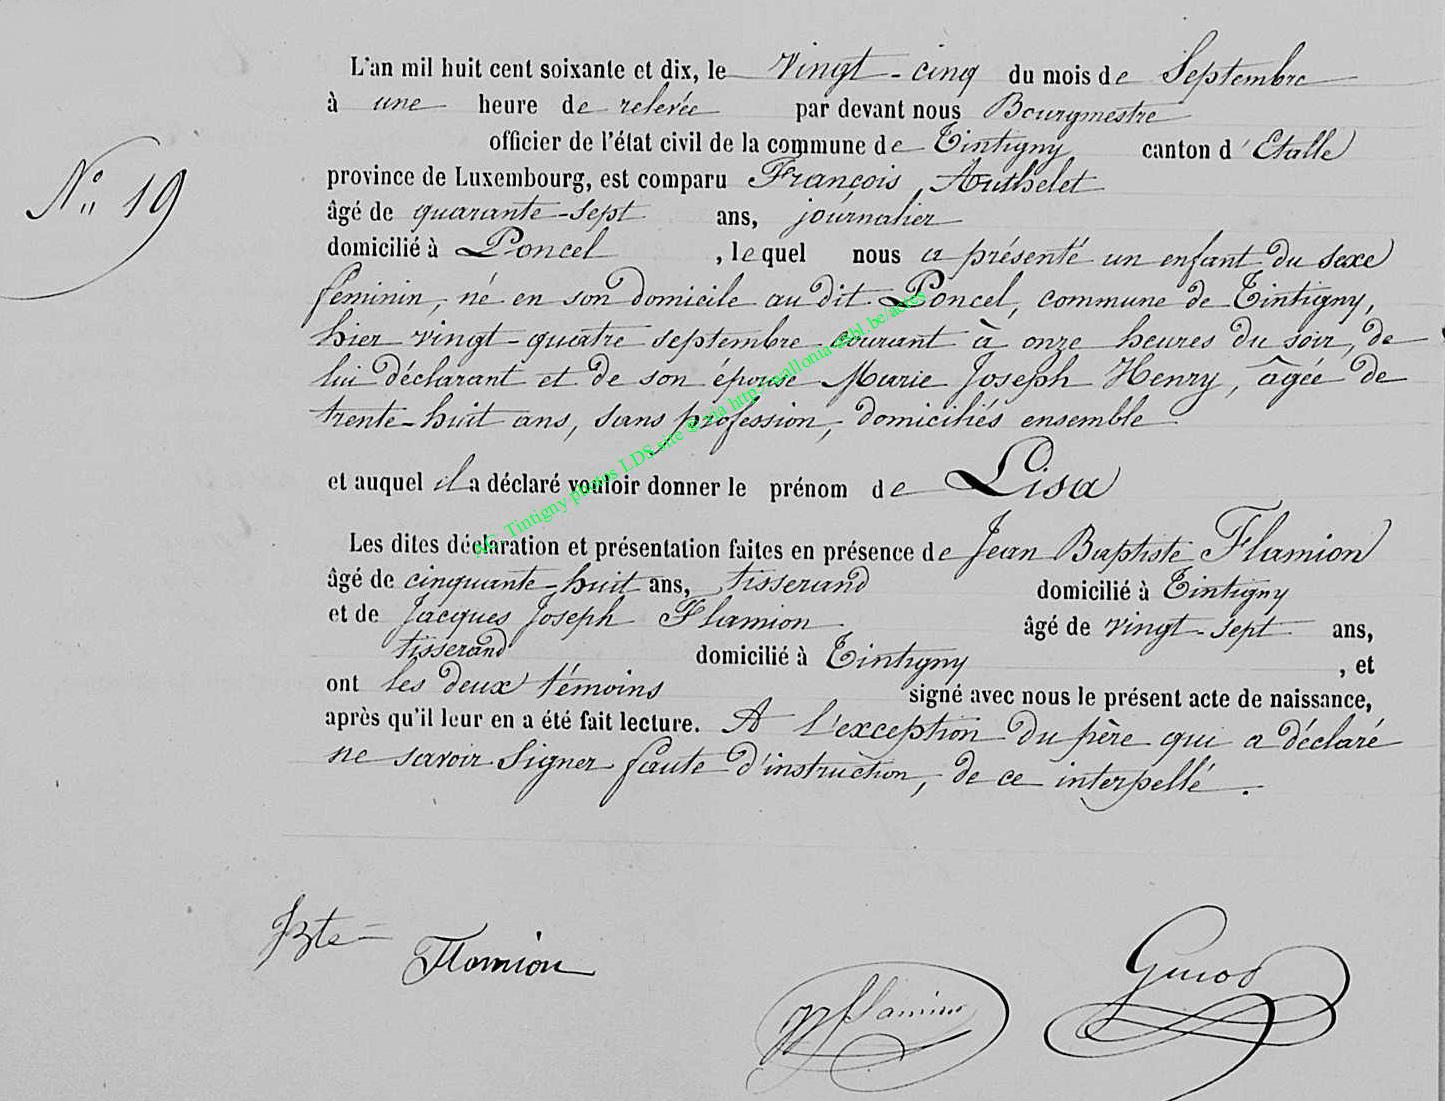 L'an mil huit cent soixante et dix, le vingt-cinq du mois de Septembre
à une heure de relevée par devant nous Bourgmestre
officier de l'état civil de la commune de Tintigny canton d'Etalle
N° 19
province de Luxembourg, est comparu François Authelet
âgé de quarante-sept ans, journalier
domicilié à Poncel, lequel nous a présenté un enfant du sexe
féminin, né en son domicile au dit Poncel, commune de Tintigny,
hier vingt-quatre septembre courant à onze heures du soir, de
lui déclarant et de son épouse Marie Joseph Henry, âgée de
trente-huit ans, sans profession, domiciliés ensemble
et auquel il a déclaré vouloir donner le prénom de Lisa
AC Tintigny photos LDS site © via http://wallonia-asbl.be/actes
Les dites déclaration et présentation faites en présence de Jean Baptiste Flamion
âgé de cinquante-huit ans, tisserand domicilié à Tintigny
et de Jacques Joseph Flamion âgé de vingt-sept ans,
tisserand domicilié à Tintigny, et
ont les deux témoins signé avec nous le présent acte de naissance,
après qu'il leur en a été fait lecture. A l'exception du père qui a déclaré
ne savoir signer faute d'instruction, de ce interpellé.
JBte Flamion
JJ Flamion